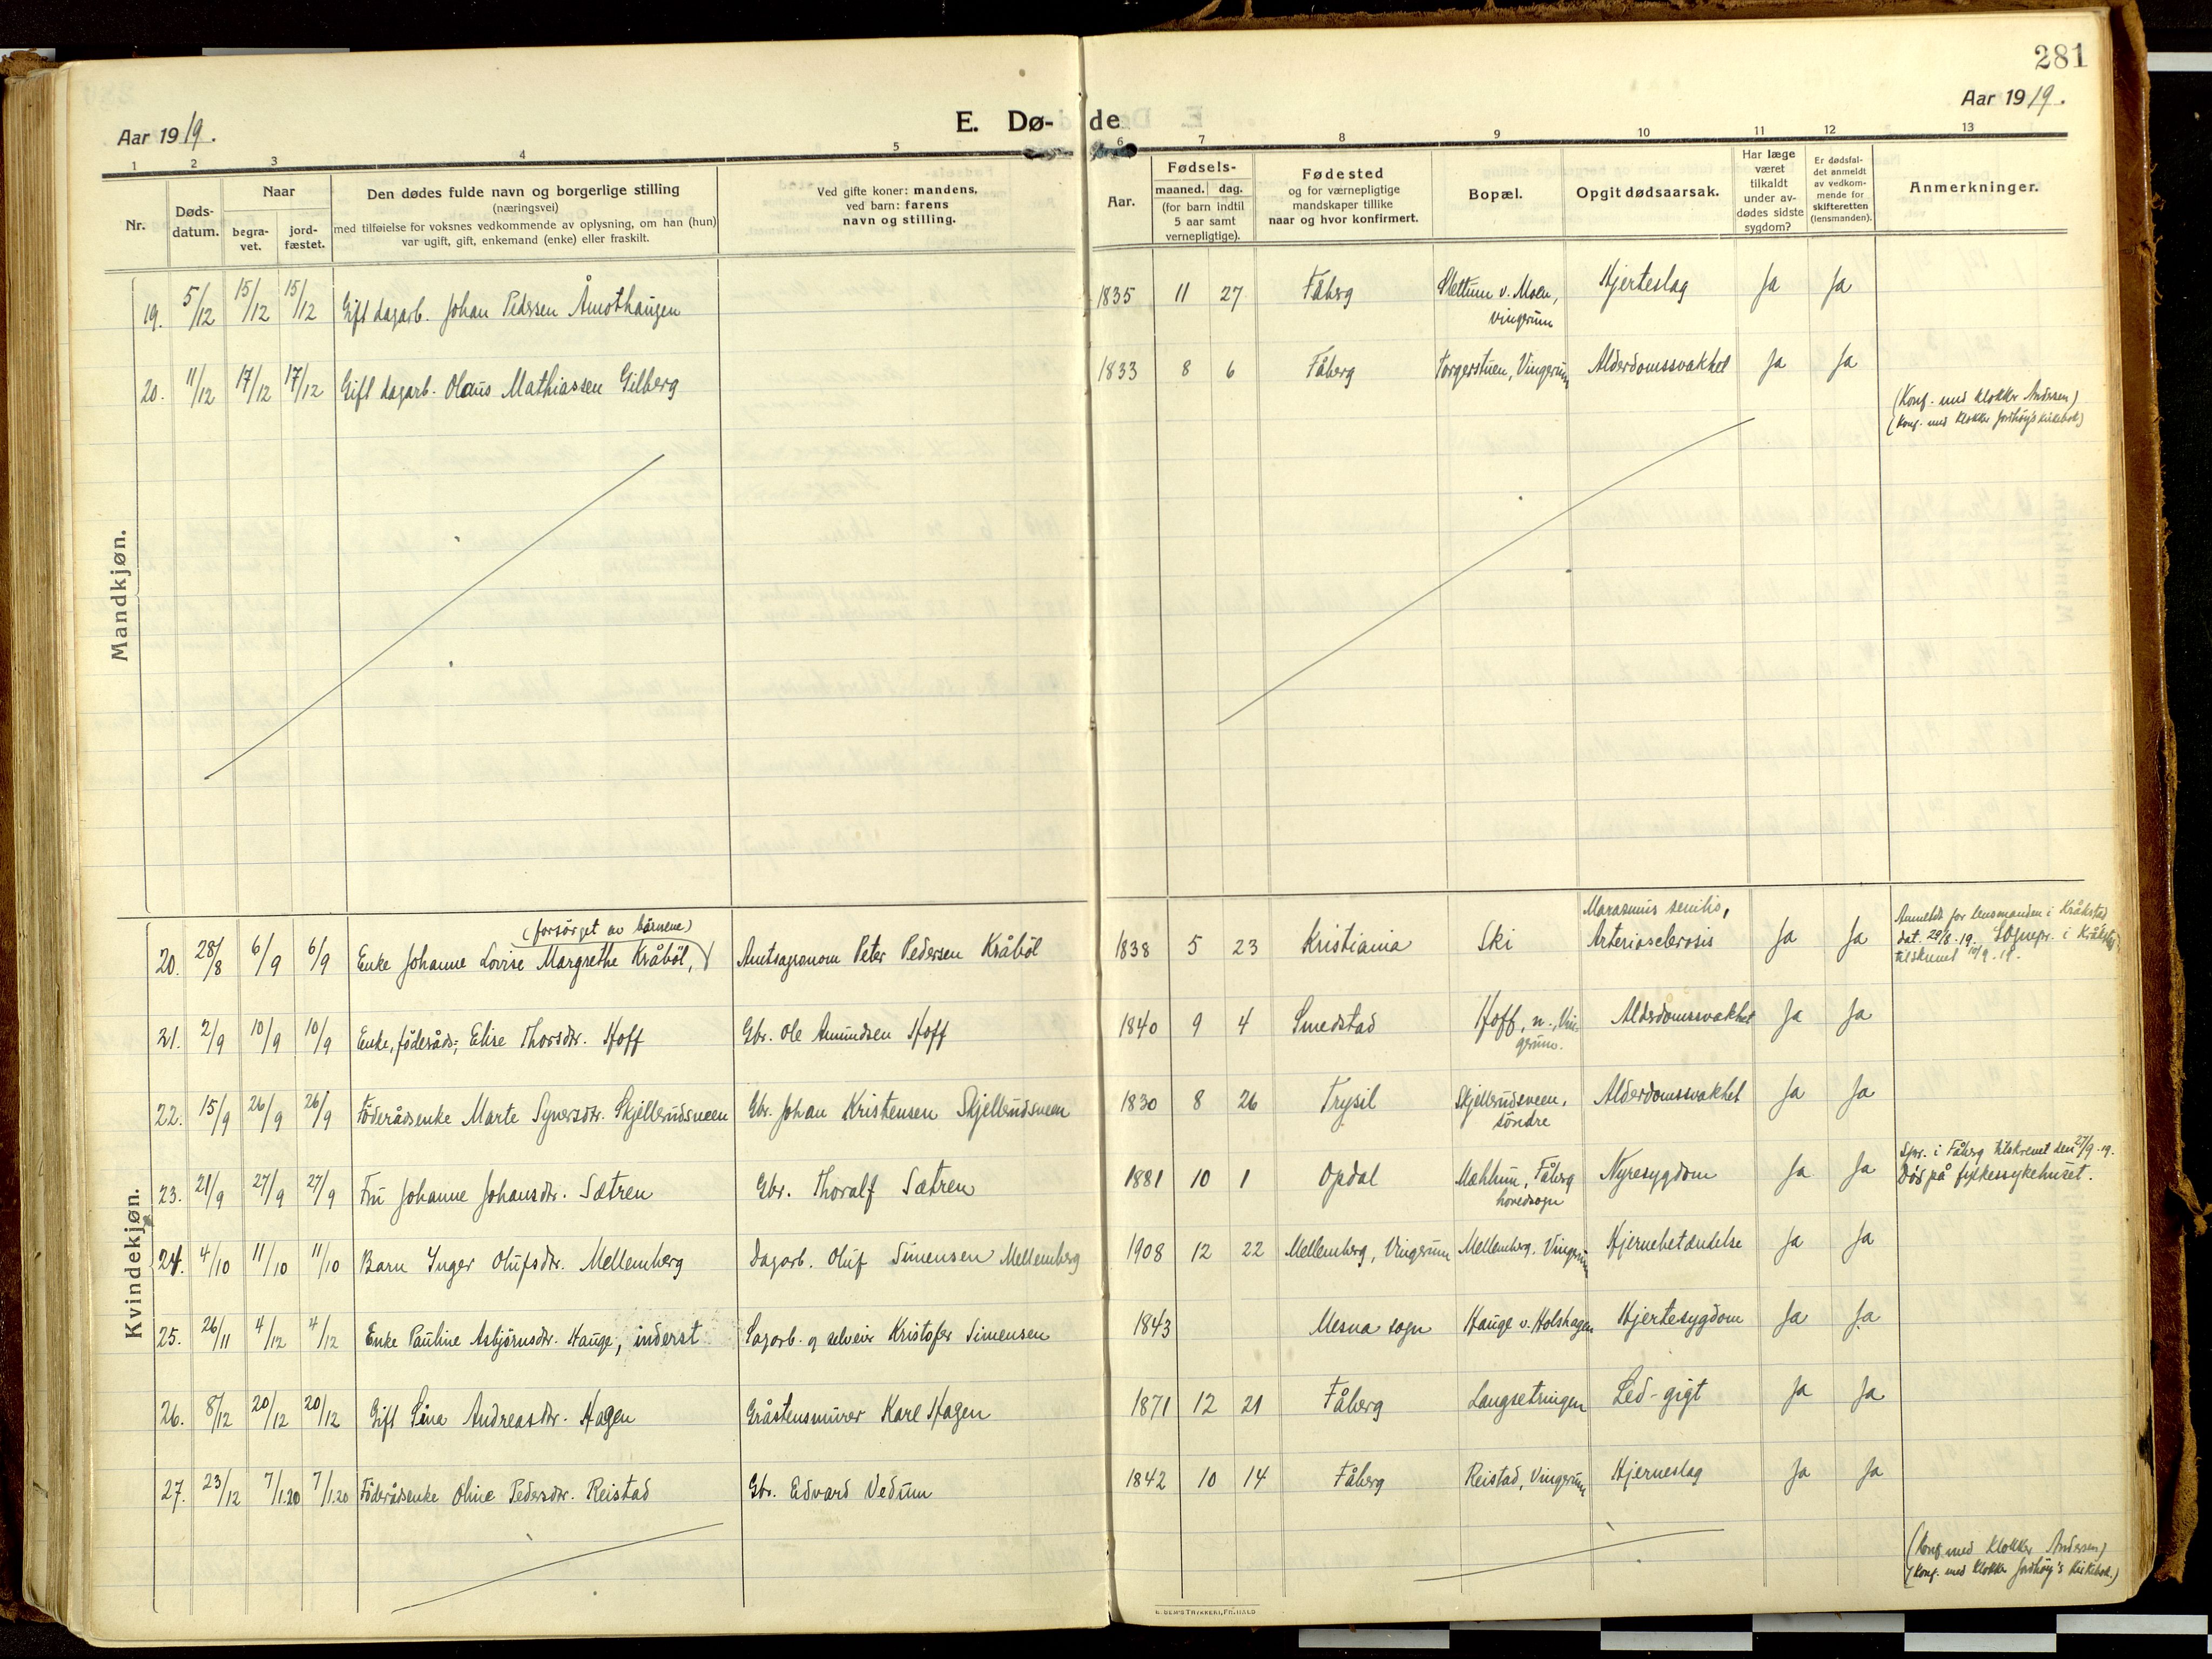 281
Aar 1919.
E. Dø-de
Aar 1919.
1 2 3 4 5 6 7 8 9 10 11 12 13
Nr.
Døds-
datum.
Naar
begra-
vet.
jord-
fæstet.
Den dødes fulde navn og borgerlige stilling
(næringsvei)
med tilføielse for voksnes vedkommende av oplysning, om han (hun)
var ugift, gift, enkemand (enke) eller fraskilt.
Ved gifte koner: mandens,
ved barn: farens
navn og stilling.
Aar.
Fødsels-
maaned. dag.
(for barn indtil
5 aar samt
vernepligtige).
Fødested
og for værnepligtige
mandskaper tillike
naar og hvor konfirmert.
Bopæl.
Opgit dødsaarsak.
Har læge
været
tilkaldt
under av-
dødes sidste
sygdom?
Er dødsfal-
det anmeldt
av vedkom-
mende for
skifteretten
(lensmanden).
Anmerkninger.
Mandkjøn.
19. 5/12 15/12 15/12 Gift dagarb. Johan Pedersen Åmothaugen 1835 11 27 Fåberg Slettum v. Moen, Hjerteslag Ja Ja
Vingrum
20. 11/12 17/12 17/12 Gift dagarb. Olaus Mathiassen Gilberg 1833 8 6 Fåberg Torgerstuen, Vingrum Alderdomssvakhet Ja Ja
(Konf. med klokker Andersen)
(Konf. med klokker Jordhøy's kirkebok)
Kvindekjøn.
(forsørget av børnene) Marasmus senilis, Anmeldt for lensmanden i Kråkstad
20. 28/8 6/9 6/9 Enke Johanne Lovise Margrethe Kråbøl, Amtsagronom Peter Pedersen Kråbøl 1838 5 23 Kristiania Ski Arteriosclerosis Ja Ja dat. 29/8-19. Sognepr. i Kråkstad
tilskrevet 10/9-19.
21. 2/9 10/9 10/9 Enke, føderåds-, Elise Thorsdtr. Hoff Gbr. Ole Amundsen Hoff 1840 9 4 Smedstad Hoff, n., Vin- Alderdomssvakhet Ja Ja
grum.
22. 15/9 26/9 26/9 Føderådsenke Marte Syversdtr. Skjellerudsveen Gbr. Johan Kristensen Skjellerudsveen 1830 8 26 Trysil Skjellerudsveen, Alderdomssvakhet Ja Ja
søndre
Spr. i Fåberg tilskrevet den 27/9-19.
23. 21/9 27/9 27/9 Fru Johanne Johansdtr. Sætren Gbr. Thoralf Sætren 1881 10 1 Opdal Mæhlum, Fåberg Nyresygdom Ja Ja Død på fylkessykehuset.
hovedsogn
24. 4/10 11/10 11/10 Barn Inger Olufsdtr. Mellemberg Dagarb. Oluf Simensen Mellemberg 1908 12 22 Mellemberg, Vingrum Mellemberg. Vingrum Hjernebetændelse Ja Ja
25. 26/11 4/12 4/12 Enke Pauline Asbjørnsdtr. Hauge, inderst Sagarb. og selveier Kristofer Simensen 1843 Mesna sogn Hauge v. Holshagen Hjertesygdom Ja Ja
26. 8/12 20/12 20/12 Gift Lina Andreasdtr. Hagen Gråstensmurer Karl Hagen 1871 12 21 Fåberg Langsetringen Led-gigt Ja Ja
27. 23/12 7/1.20 7/1.20 Føderådsenke Oline Pedersdtr. Reistad Gbr. Edvard Vedum 1842 10 14 Fåberg Reistad, Vingrum Hjerneslag Ja Ja
(Konf. med klokker Andersen)
(Konf. med klokker Jordhøy's kirkebok.)